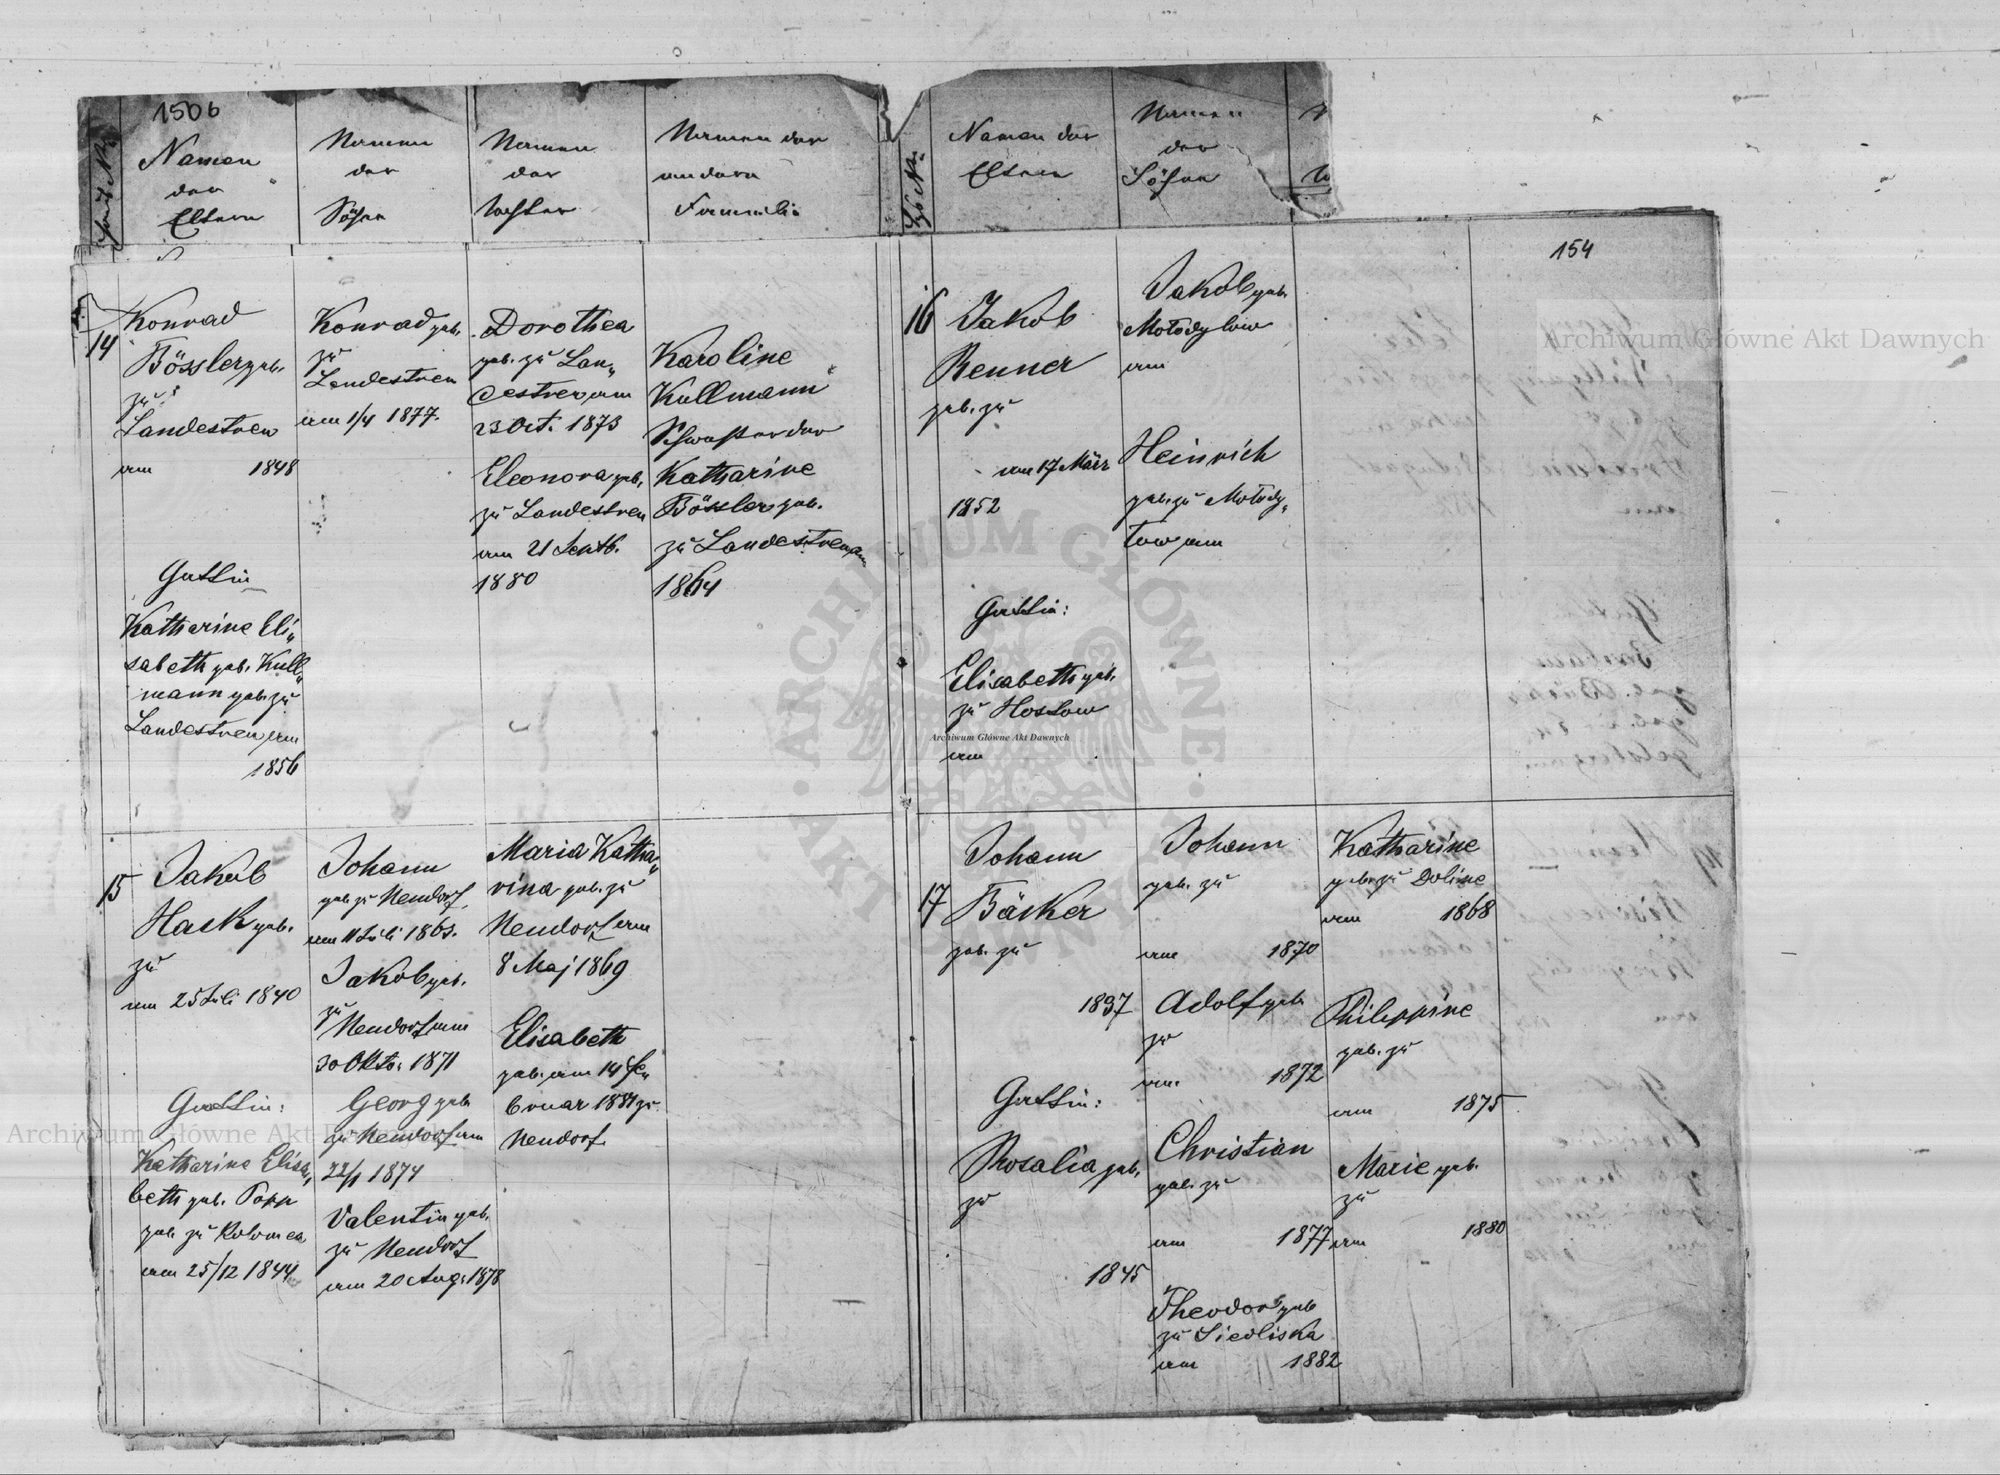 1506
Namen
der
Eltern
Namen
der
Söhne
Namen
der
Töchter
Namen der
andern
Familie
14
Konrad
Bösslergeb.
zu
Landestreu
am 1848
Gattin
Katharine Eli„
sabeth geb. Kull„
mann geb. zu
Landestreu am
1856
Konrad geb.
zu
Landestreu
am 1/4 1877.
Dorothea
geb. zu Lan„
destreu am
23 Oct. 1873
Eleonora geb.
zu Landestreu
am 21 Septb.
1880
Karoline
Kullmann
Schwester der
Katharine
Bössler geb.
zu Landestreu am
1864
15
Jakob
Hack geb.
zu
am 25 Juli 1840
Gattin:
Katharine Elisa„
beth geb. Popp
geb. zu Kolomea
am 25/12 1844
Johann
geb. zu Neudorf
am 11 Juli 1865.
Jakob geb.
zu
Neudorf am
30 Okto. 1871
Georg geb.
zu Neudorf am
22/1 1874
Valentin geb.
zu Neudorf
am 20 Aug. 1878
Maria Katha„
rina geb. zu
Neudorf am
8 Maj 1869
Elisabeth
geb. am 14 Fe„
bruar 1881 zu
Neudorf.
Namen der
Eltern
Namen
der
Söhne
154
16
Jakob
Renner
geb. zu
am 17 März
1852
Gattin:
Elisabeth geb.
zu Hostow
am
Jakob geb.
Mołodyłow
am
Heinrich
geb. zu Mołody„
łow am
17
Johann
Bäcker
geb. zu
1837
Gattin:
Rosalia geb.
zu
1845
Johann
geb. zu
am 1870
Adolf geb.
zu
am 1872
Christian
geb. zu
am 1877
Theodor geb.
zu Siedliska
am 1882
Katharine
geb. zu Doline
am 1868
Philippine
geb. zu
am 1875
Marie geb.
zu
am 1880
Archiwum Główne Akt Dawnych
Archiwum Główne Akt Dawnych
Archiwum Główne Akt Dawnych
ARCHIWUM GŁÓWNE AKT DAWNYCH